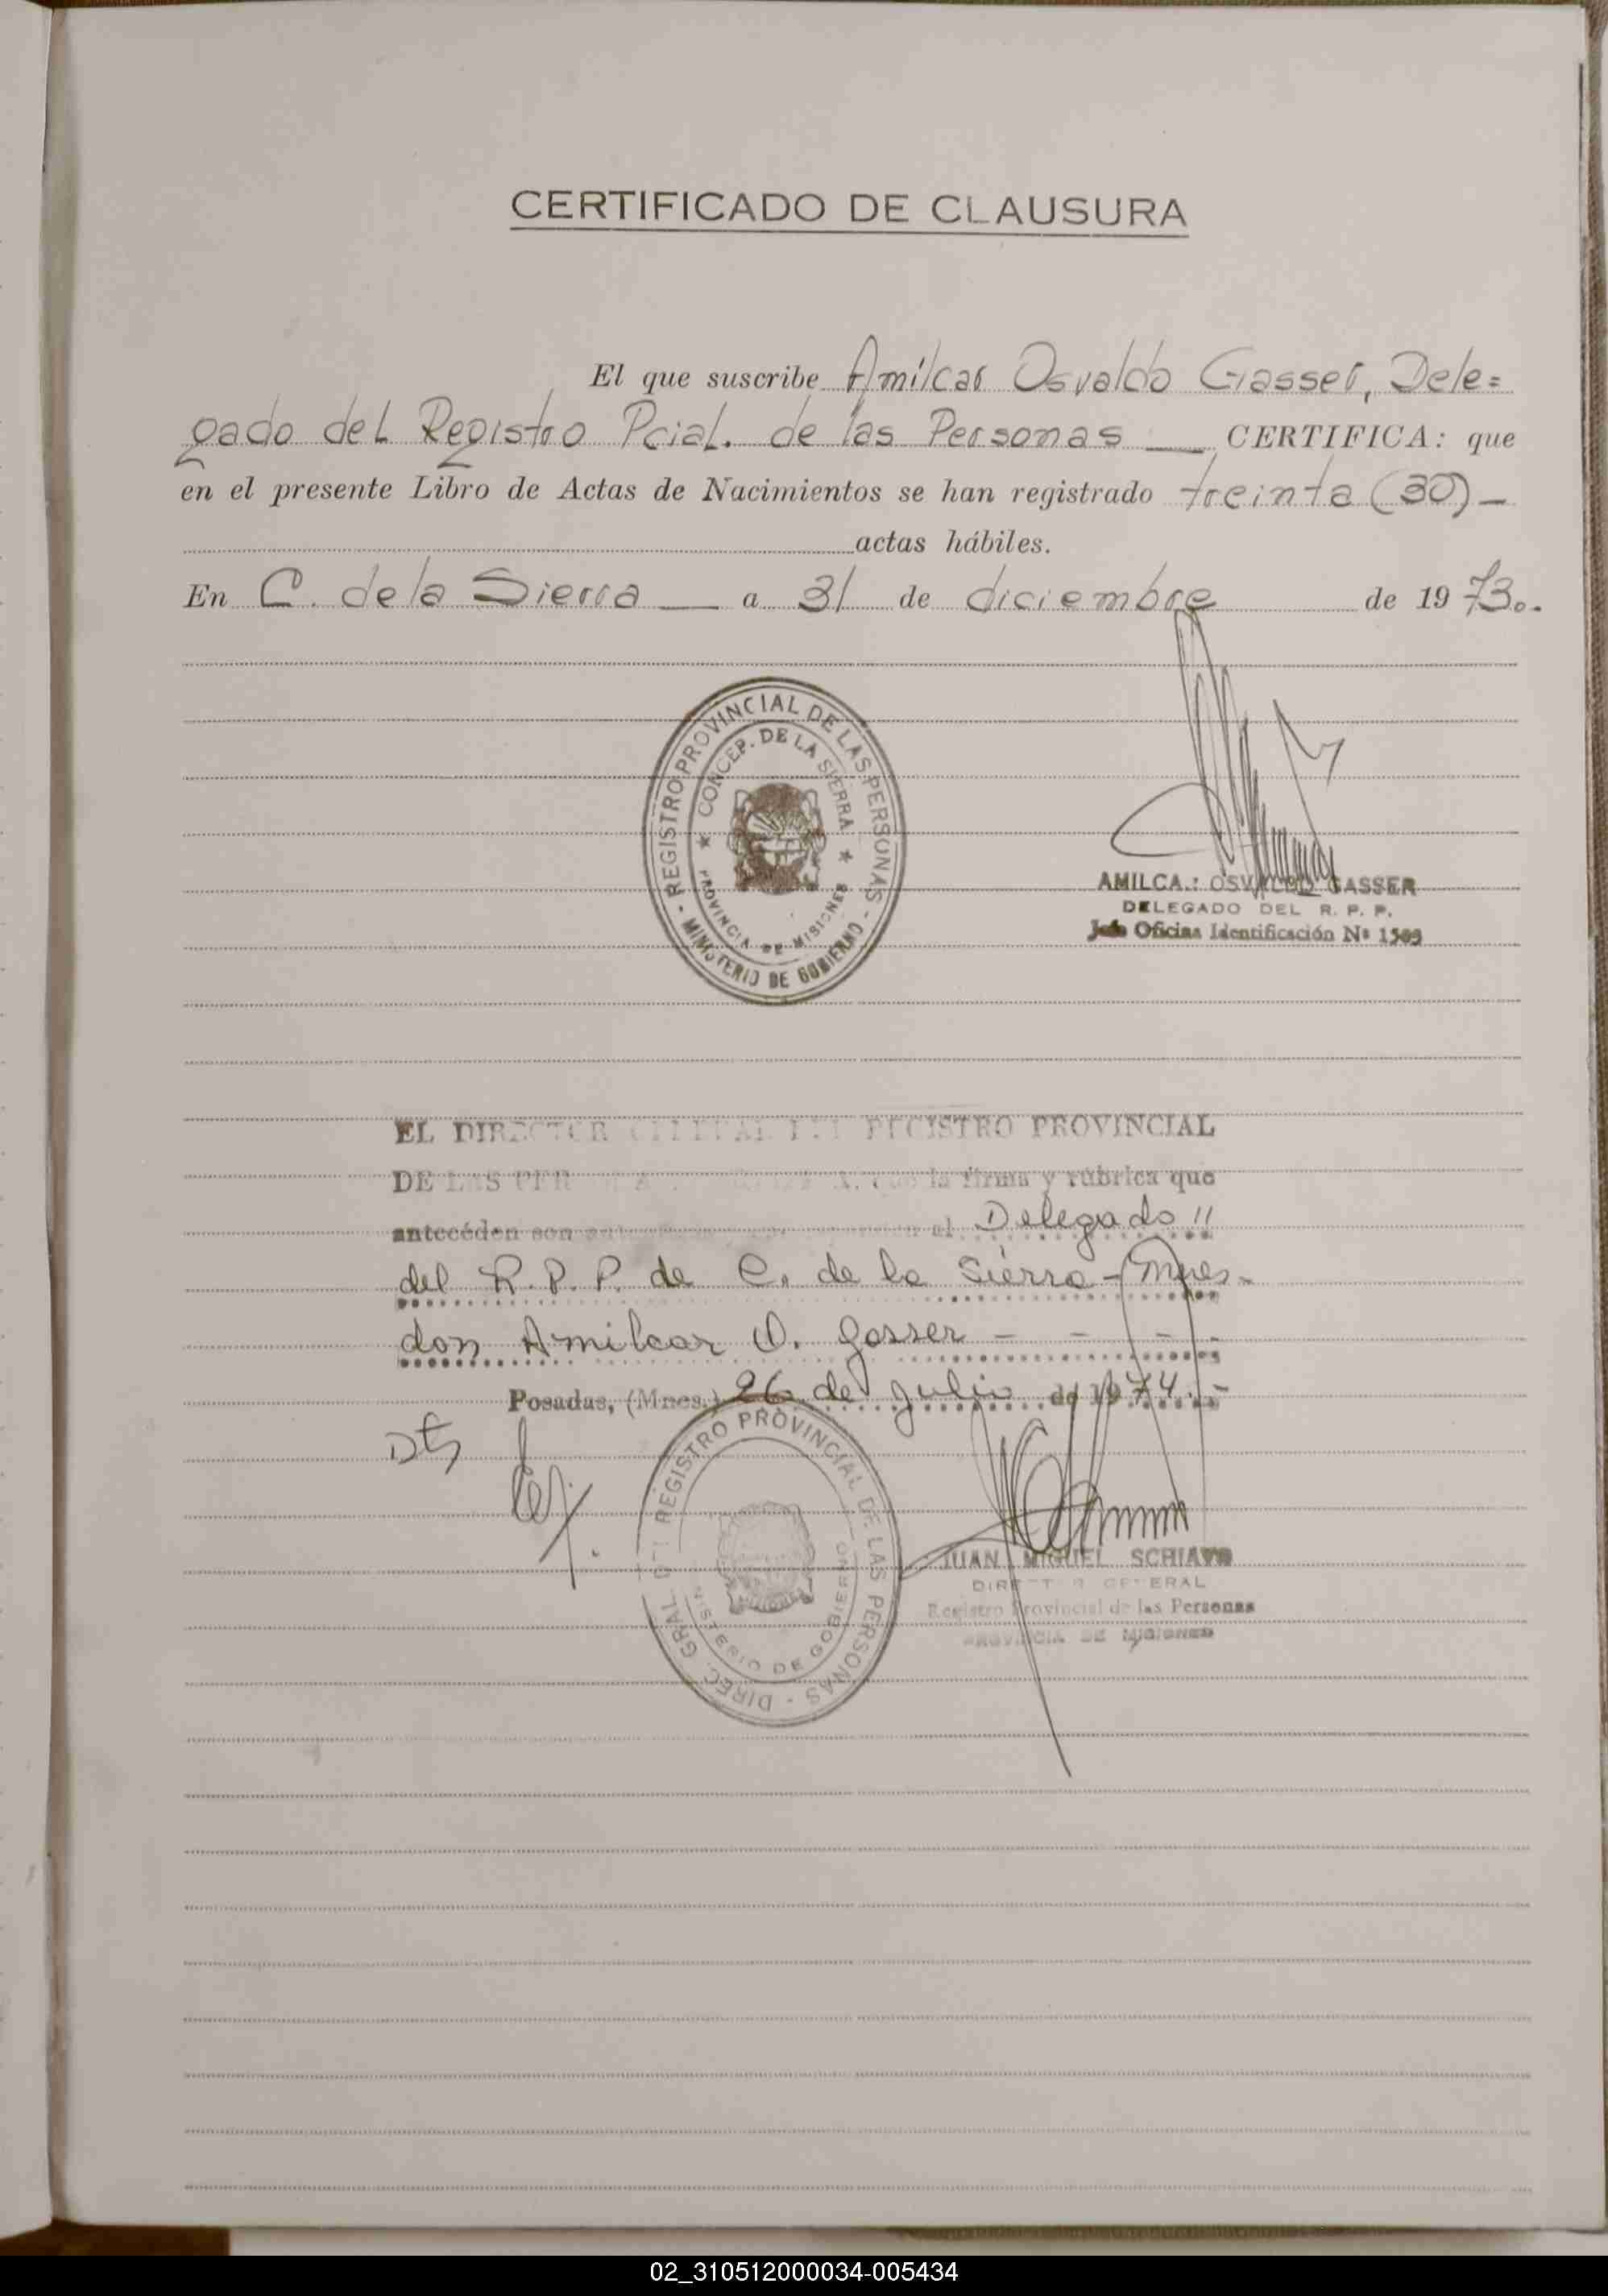 CERTIFICADO DE CLAUSURA
El que suscribe Amílcar Osvaldo Gasser, Dele=
gado del Registro Pcial. de las Personas — CERTIFICA: que
en el presente Libro de Actas de Nacimientos se han registrado treinta (30) —
actas hábiles.
En C. de la Sierra — a 31 de diciembre de 1973.
REGISTRO PROVINCIAL DE LAS PERSONAS - MINISTERIO DE GOBIERNO -
★ CONCEP. DE LA SIERRA ★
PROVINCIA DE MISIONES
AMILCAR OSVALDO GASSER
DELEGADO DEL R. P. P.
Jefe Oficina Identificación Nº 1509
EL DIRECTOR GENERAL DEL REGISTRO PROVINCIAL
DE LAS PER que la firma y rúbrica que
antecéden son al Delegado "
del R.P.P. de C. de la Sierra - Mnes -
don Amilcar O. Gasser - - - -
Posadas, (Mnes.) 26 de Julio de 1974. -
DIREC. GRAL. DEL REGISTRO PROVINCIAL DE LAS PERSONAS -
MINISTERIO DE GOBIERNO
JUAN MIGUEL SCHIAVO
DIRECTOR GENERAL
Registro Provincial de las Personas
PROVINCIA DE MISIONES
02_310512000034-005434